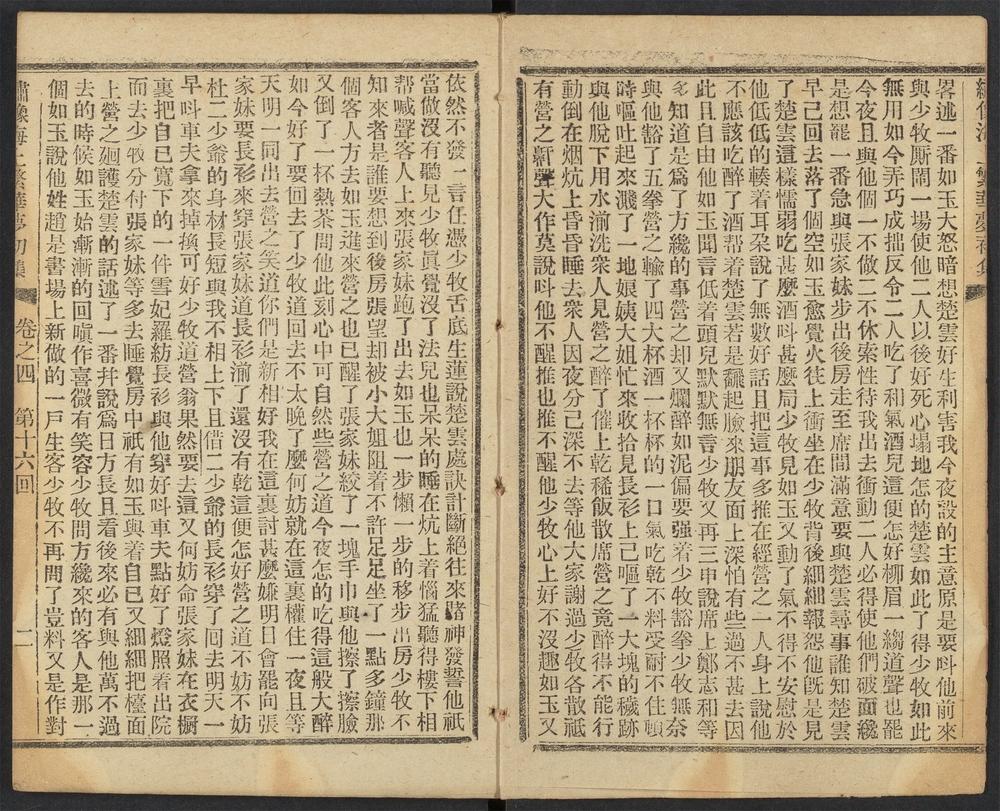 畧述一番如玉大怒暗想楚雲好生利害我今夜設的主意原是要呌他前來
與少牧厮鬧一場使他二人以後好死心塌地怎的楚雲如此了得少牧如此
無用如今弄巧成拙反令二人吃了和氣酒兒這便怎好柳眉一縐道聲也罷
今夜且與他個一不做二不休索性待我出去衝動二人必得使他們破面纔
是想罷一番急與張家妹步出後房走至席間滿意要與楚雲尋事誰知楚雲
早己回去落了個空如玉愈覺火往上衝坐在少牧背後細細報怨他旣是見
了楚雲這樣懦弱吃甚麽酒呌甚麽局少牧見如玉又動了氣不得不安慰於
他低低的輳着耳朶說了無數好話且把這事多推在經營之一人身上說他
不應該吃醉了酒帮着楚雲若是飜起臉來朋友面上深怕有些過不甚去因
此且自由他如玉聞言低着頭兒默默無言少牧又再三申說席上鄭志和等
多知道是爲了方纔的事營之却又爛醉如泥偏要强着少牧豁拳少牧無奈
與他豁了五拳營之輸了四大杯酒一杯杯的一口氣吃乾不料受耐不住頓
時嘔吐起來濺了一地娘姨大姐忙來收拾見長衫上己嘔了一大塊的穢跡
與他脫下用水湔洗衆人見營之醉了催上乾稀飯散席營之竟醉得不能行
動倒在烟炕上昏昏睡去衆人因夜分己深不去等他大家謝過少牧各散祇
有營之鼾聲大作莫說呌他不醒推也推不醒他少牧心上好不沒趣如玉又
依然不發一言任憑少牧舌底生蓮說楚雲處訣計斷絕往來賭神發誓他祇
當做沒有聽見少牧眞覺沒了法兒也呆呆的睡在炕上着惱猛聽得樓下相
帮喊聲客人上來張家妹跑了出去如玉也一步懶一步的移步出房少牧不
知來者是誰要想到後房張望却被小大姐阻着不許足足坐了一點多鐘那
個客人方去如玉進來營之也已醒了張家妹絞了一塊手巾與他擦了擦臉
又倒了一杯熱茶問他此刻心中可自然些營之道今夜怎的吃得這般大醉
如今好了要回去了少牧道回去不太晚了麽何妨就在這裏權住一夜且等
天明一同出去營之笑道你們是新相好我在這裏討甚麽嫌明日會罷向張
家妹要長衫來穿張家妹道長衫湔了還沒有乾這便怎好營之道不妨不妨
杜二少爺的身材長短與我不相上下且借二少爺的長衫穿了回去明天一
早呌車夫拿來掉換可好少牧道營翁果然要去這又何妨命張家妹在衣櫥
裏把自己寬下的一件雪妃羅紡長衫與他穿好呌車夫點好了燈照着出院
而去少牧分付張家妹等多去睡覺房中祇有如玉與着自已又細細把檯面
上營之廻護楚雲的話述了一番幷說爲日方長且看後來必有與他萬不過
去的時候如玉始漸漸的回嗔作喜微有笑容少牧問方纔來的客人是那一
個如玉說他姓趙是書場上新做的一戶生客少牧不再問了豈料又是作對
繡像海上繁華夢初集 卷之四 第十六回 二